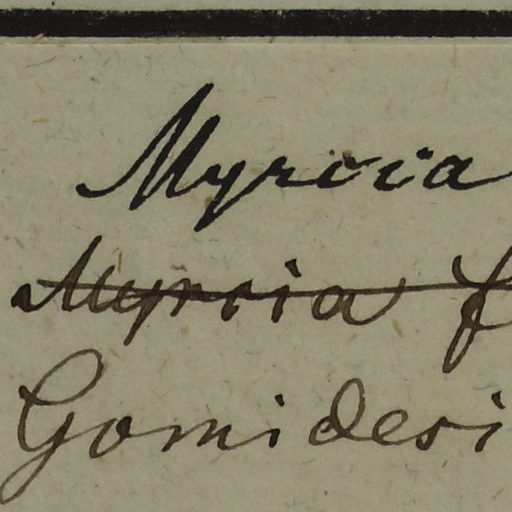 Myrcia
Myrcia f
Gomidesi